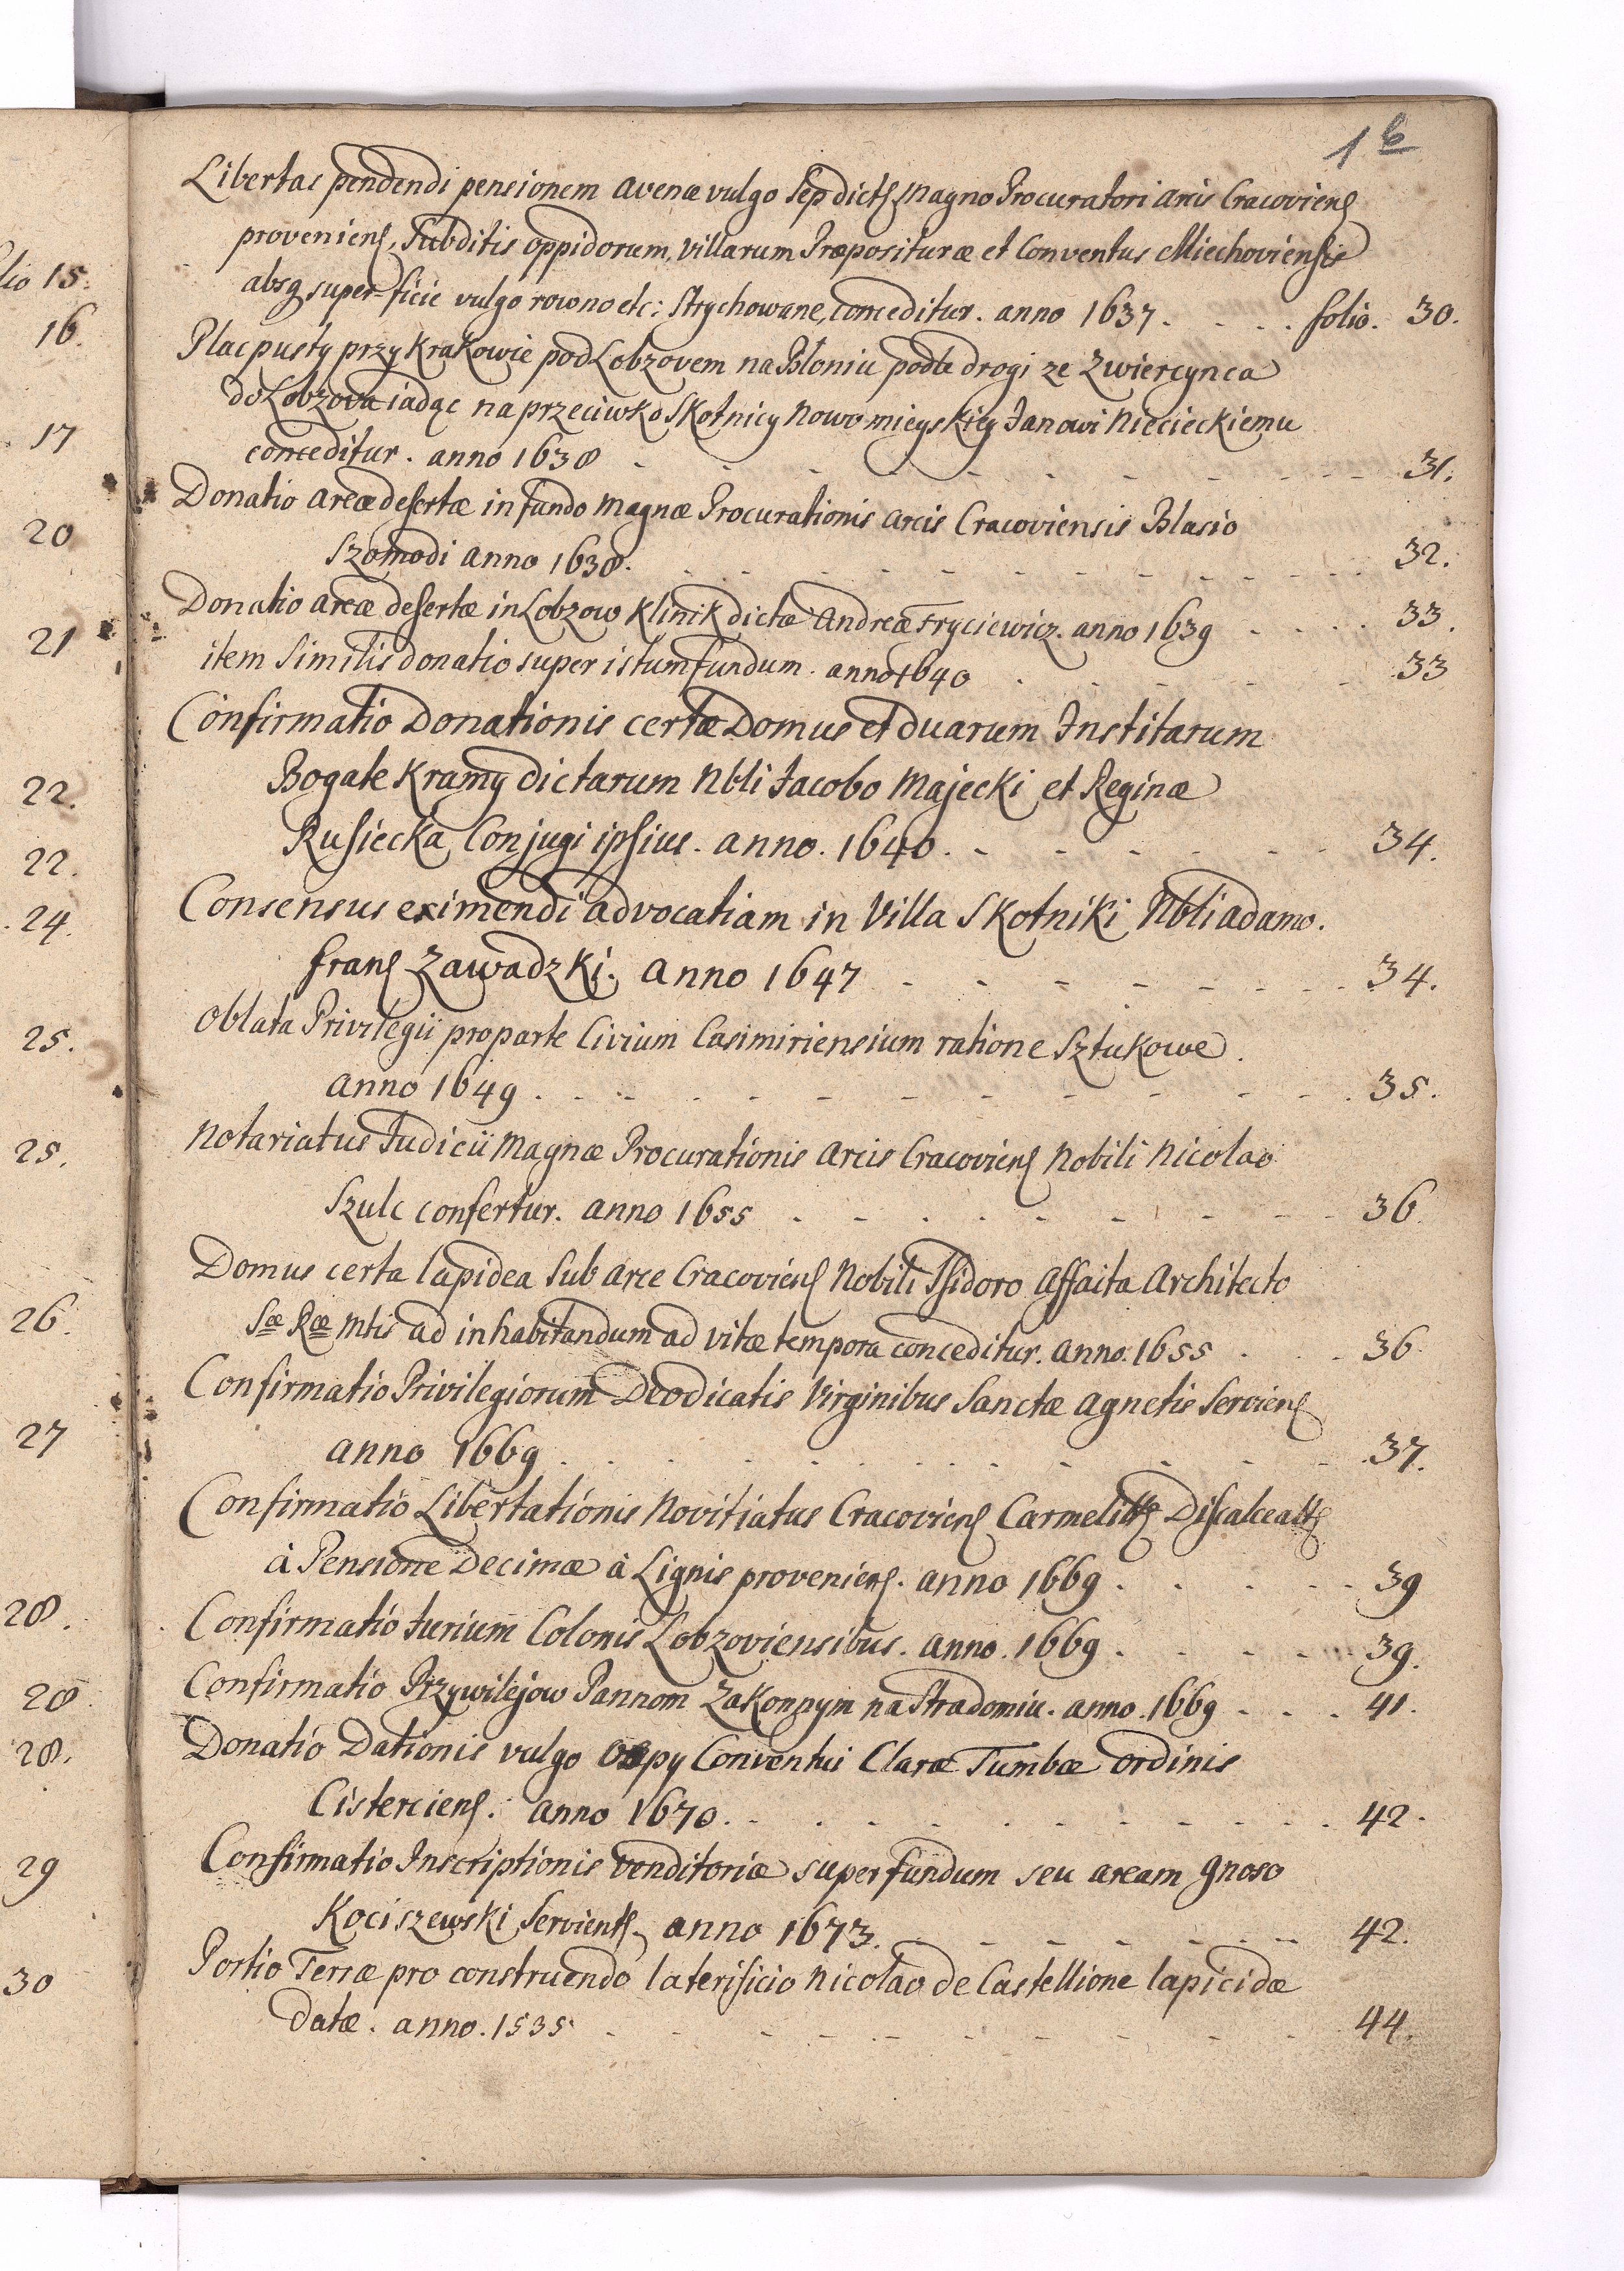 1b
Libertas pendendi pensionem avenæ vulgo Sep dicts, Magno Procuratori arcis Cracoviens
proveniens, Subditis oppidorum, villarum Præposituræ et Conventus Miechoviensis
absq superficie vulgo rowno etc: Strychowane, conceditur. anno 1637. . . . folio. 30.
Plac pusty przy Krakowie pod Lobzovem na Błoniu podle drogi ze Zwiercynca
do Lobzova iadąc na przeciwko Skotnicy Nowo-mieyskiey Janowi Niecieckiemu
conceditur. anno 1638 - - - - - - 31.
Donatio areæ desertæ in fundo Magnæ Procurationis arcis Cracoviensis Blasio
Szomodi anno 1638. - - - - - - 32.
Donatio areæ desertæ in Lobzow Klinik dictæ Andreæ Fryciewicz. anno 1639 - - - 33.
item Similis donatio super istum fundum. anno 1640 . - - - 33
Confirmatio Donationis certæ Domus et duarum Institarum
Bogate Kramy dictarum Nbli Jacobo Majecki et Reginæ
Rusiecka Conjugi ipsius. anno. 1640. - - - - - 34.
Consensus eximendi advocatiam in Villa Skotniki Nbli adamo.
frans Zawadzki. anno 1647 - - - - - - 34.
Oblata Privilegii pro parte Civium Casimiriensium ratione Sztukowe.
anno 1649. - - - - - - 35.
Notariatus Judicii Magnæ Procurationis Arcis Cracoviens Nobili Nicolao
Szulc confertur. anno 1655 - - - - - - 36.
Domus certa lapidea Sub arce Cracoviens Nobili Isidoro Affaita Architecto
Sæ Ræ Mtis ad inhabitandum ad vitæ tempora conceditur. anno. 1655 . . 36.
Confirmatio Privilegiorum Deodicatis Virginibus Sanctæ Agnetis Serviens
anno 1669. - - - - - - 37.
Confirmatio Libertationis Novitiatus Cracoviens Carmelitts Discalceatts
à Pensione Decimæ à Lignis proveniens. anno 1669. - - - - 39
Confirmatio Jurium Colonis Lobzoviensibus. anno. 1669. - - - - 39.
Confirmatio Przywilejow Pannom Zakonnym na Stradomiu. anno. 1669 . . . 41.
Donatio Dationis vulgo Osepy Conventui Claræ Tumbæ ordinis
Cisterciens. anno 1670. - - - - - - 42.
Confirmatio Inscriptionis venditoriæ super fundum seu aream gnoso
Kociszewski Servients. anno 1673. - - - - - 42.
Portio Terræ pro construendo laterificio Nicolao de Castellione lapicidæ
datæ. anno. 1535 - - - - - - 44.
lio 15.
16.
17
20
21
22.
22.
24.
25.
25.
26.
27
28.
28
28.
29
30